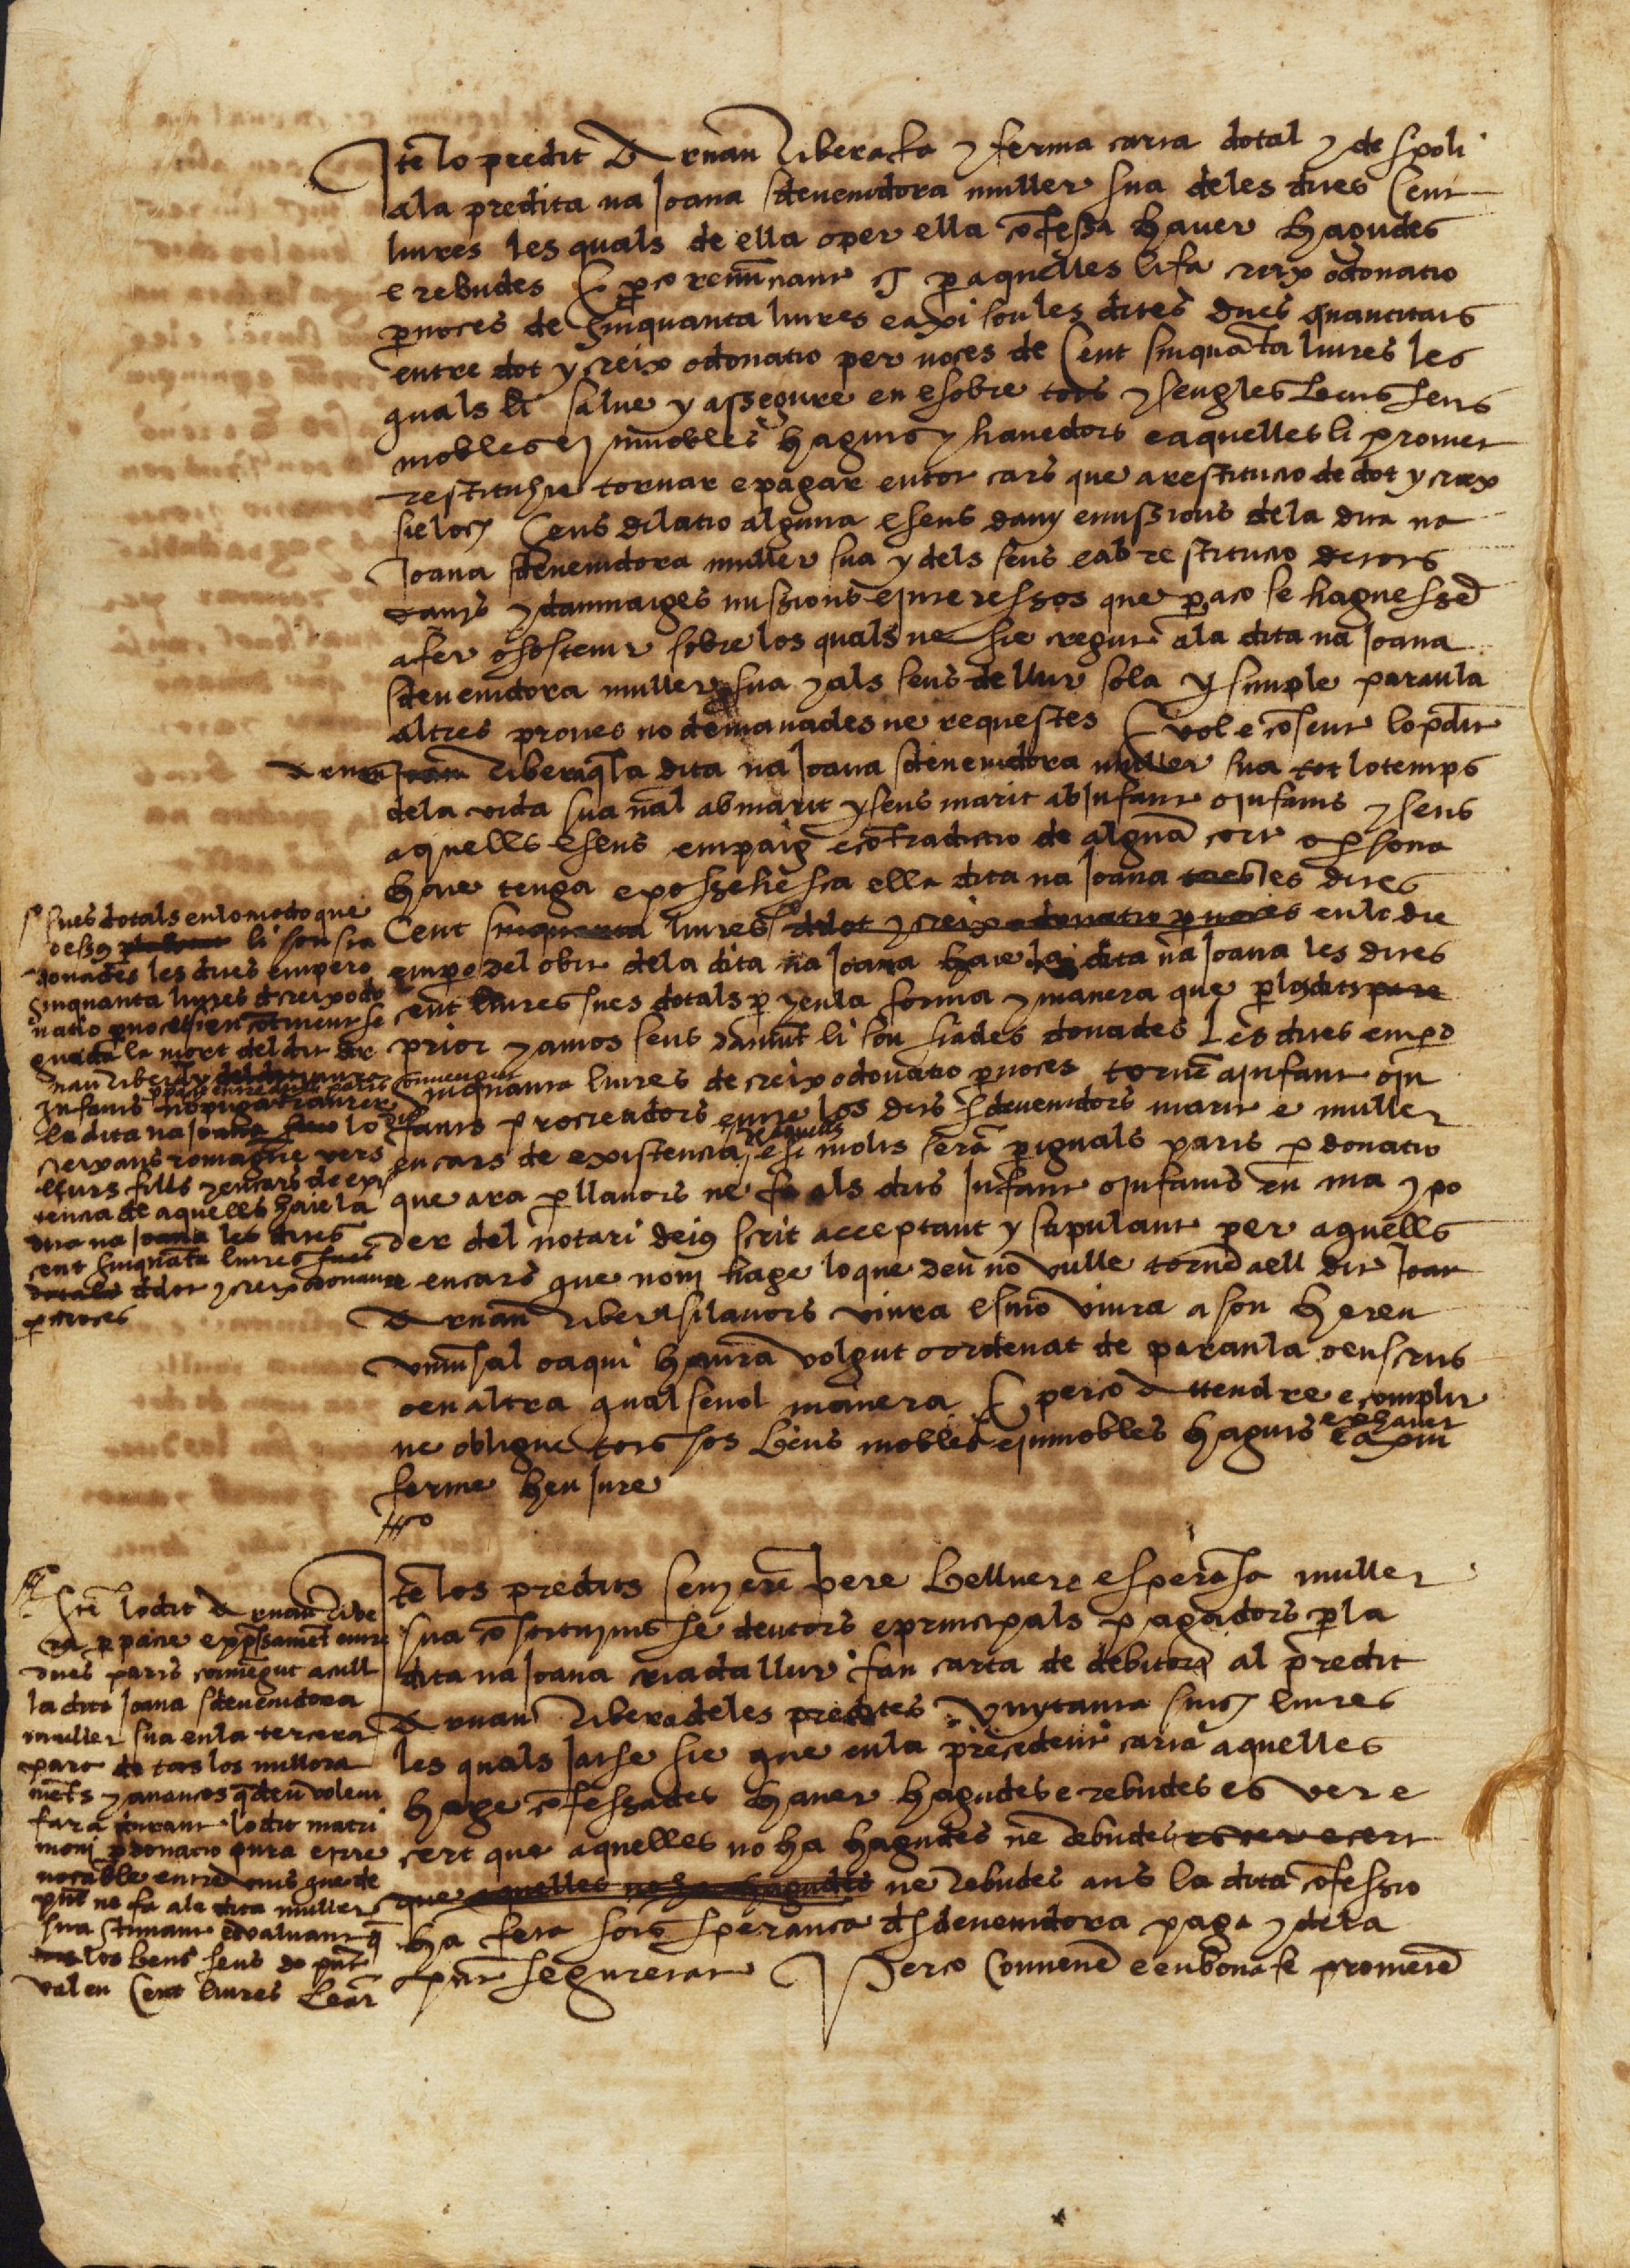 Itē lo predit Arnau Ribera fa y ferma carta dotal y de spoli
ala predita na Joana sdevenidora muller sua deles dites Cent
liures les quals de ella o per ella cōfessa haver hagudes
e rebudes E ꝑço renūciant ꝑ aquelles li fa creix o donatio
ꝑ noces de sinquanta liures e axi son les dites dues quantitats
entre dot y creix o donatio per noces de Cent sinquāta liures les
quals li salve y assegure en e sobre tots y sengles bens seus
mobles e inmobles haguts y havedors e aquelles li promet
restituhir tornar e pagar en tot cars que a restitucio de dot y creix
sie loch Sens dilatio alguna e sens dany e missions dela dita na
Joana sdevenidora muller sua y dels seus e ab restitucio de tots
danys y dampnatges missions e interessos que ꝑ aço se haguessē
a fer o sostenir sobre los quals ne sie cregut ala dita na Joana
sdevenidora muller sua y als seus de llur sola y simple paraula
altres proves no demanades ne requestes E vol e cōsent lo pdit
Arnau Joan Ribera q̄ la dita na Joana sdevenidora muller sua tot lo temps
dela vida sua nāl ab marit y sens marit ab infant o infants y sens
aquells e sens empaig e cōtradictio de alguna cort o ꝑsona
haie tenga e possehesca ella dita na Joana totes les dites
Cent sinquanta liures de dot y creix o donatio ꝑ noces en lo die
empero del obit dela dita na Joana haie la dita na Joana les dites
cent liures sues dotals ꝑ y en la forma y manera que ꝑ los dits pare
prior y amos seus damūt li son stades donades Les dites empo
sinquanta liures de creix o donatio ꝑ noces tornē a infant o in
fants procreadors entre los dits sdevenidors marit e muller
en cars de existencia de aquells e si molts serā ꝑ iguals parts ꝑ donatio
que ara ꝑ llavors ne fa als dits Infant o infants en ma y po
der del notari deius scrit acceptant y stipulant per aquells
e encars que noni hage lo que deu no vulle tornē a ell dit Joan
Arnau Ribera si lavors viura e si no viura a son hereu
univsal o a qui haura volgut o ordenat de paraula o en scrits
o en altra qualsevol manera E perço attendre e complir
ne obligue tots sos bens mobles e inmobles haguts e ꝑ haver e axi u
ferme heu jure
sues dotals en lo modo que
desus li son sta
donades les dites empero
sinquanta liures de creix o do
natio ꝑ noces si en cōtinent se
guida la mort del dit Ar
nau Ribera
infants no puga traurer
la dita na Joana lo
creix ans romangue vers
llurs fills y en cars de exis
tencia de aquells haie la
dita na Joana les dites
cent sinquāta liures sues
dotals de dot y creix o donatio
ꝑ noces
Itē los predits senyer en Pere Bellver e Sperāsa muller
sua cōstituints se deutors e principals pagadors ꝑ la
dita na Joana criada llur fan carta de debitori al predit
Arnau Ribera deles predites Vuytanta sinch liures
les quals jatse sie que en la precedent carta aquelles
hage cōfessades haver hagudes e rebudes es ver e
cert que aquelles no ha hagudes ne rebudes es ver e cert
que aquelles no ha hagudes ne rebudes ans la dita cōfessio
ha feta sots sperança de sdevenidora paga y dela
pnt seguretat Perço Convenē e en bona fe prometē
Itē lo dit Arnau Ribe
ra ꝑ pacte expssament entre
dues parts convengut acull
la dita Joana sdevenidora
muller sua en la tercera
part de tots los millora
mēts y avanços q̄ deu volent
fara durant lo dit matri
moni ꝑ donacio pura e irre
vocable entre vius que de
pnt ne fa a la dita muller
sua stimant e avaluant q̄
los bens seus de pnt
valen Cent liures